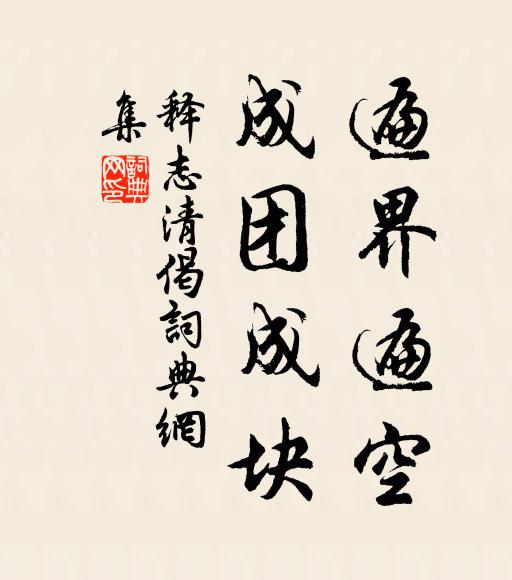 遍界遍空
成团成块
释志清偈詞典網
集
詞典
网印